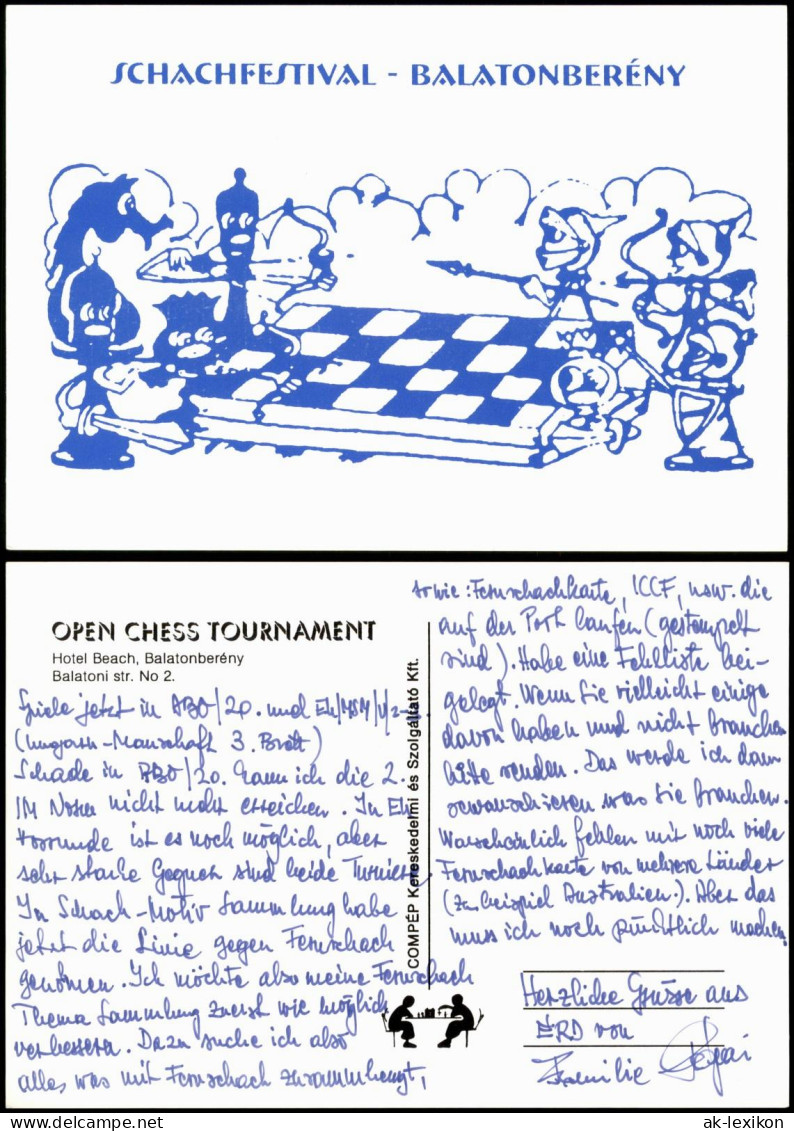 SCHACHFESTIVAL - BALATONBERÉNY
OPEN CHESS TOURNAMENT
Hotel Beach, Balatonberény
Balatoni str. No 2.
Spiele jetzt in ABO/20. und
(ungarn-Manschaft 3. Brett)
Schade in ABO/20. kann ich die 2.
IM Norm nicht mehr erreichen. In EM
Vorrunde ist es noch möglich, aber
sehr starke Gegner sind beide Turniere.
In Schach-Motiv Sammlung habe
jetzt die Linie gegen Fernschach
genommen. Ich möchte also meine Fernschach
Thema Sammlung zuerst wie möglich
verbessern. Dazu suche ich also
alles was mit Fernschach zusammhengt,
COMPÉP Kereskedelmi és Szolgáltató Kft.
sowie: Fernschachkarte, ICCF, usw. die
auf der Post laufen (gestempelt
sind). Habe eine Fehlliste bei-
gelegt. Wenn Sie vielleicht einige
davon haben und nicht brauchen
bitte senden. Das werde ich dann
rewanschieren was Sie brauchen.
Warscheinlich fehlen mit noch viele
Fernschachkarte von mehrere Länder
(zum beispiel Australien). Aber das
muss ich noch pünktlich machen.
Herzliche Grüsse aus
ÉRD von
Familie
ak-lexikon.com